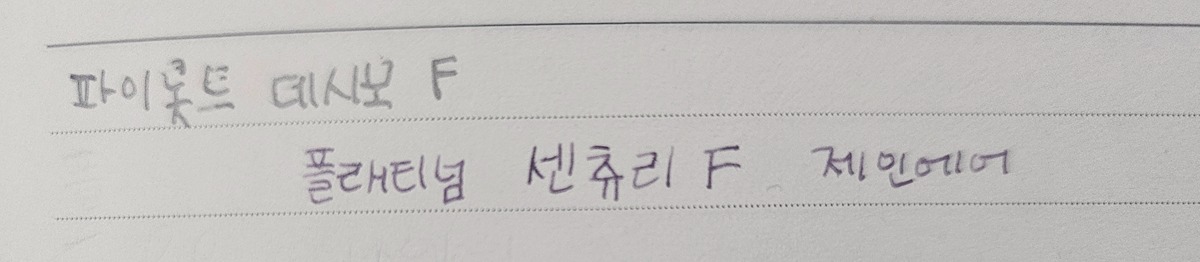 파이롯트 데시모 F
플래티넘 센츄리 F 제인에어